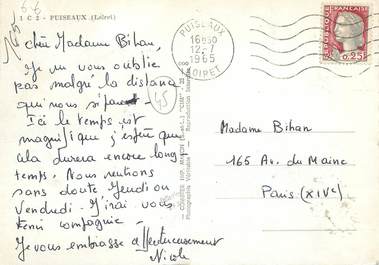 1 C 2 - PUISEAUX (Loiret)
chère Madame Bihan,
Je ne vous oublie
pas malgré la distance
qui nous sépare.
Ici le temps est
magnifique j'espère que
cela durera encore long-
temps. Nous rentrons
sans doute Jeudi ou
Vendredi. J'irai vous
tenir compagnie.
Je vous embrasse affectueusement
Nicole
45
PUISEAUX
16H30
12-7
1965
LOIRET
REPUBLIQUE FRANÇAISE
0,25
Madame Bihan
165 Av. du Maine
Paris (XIVe)